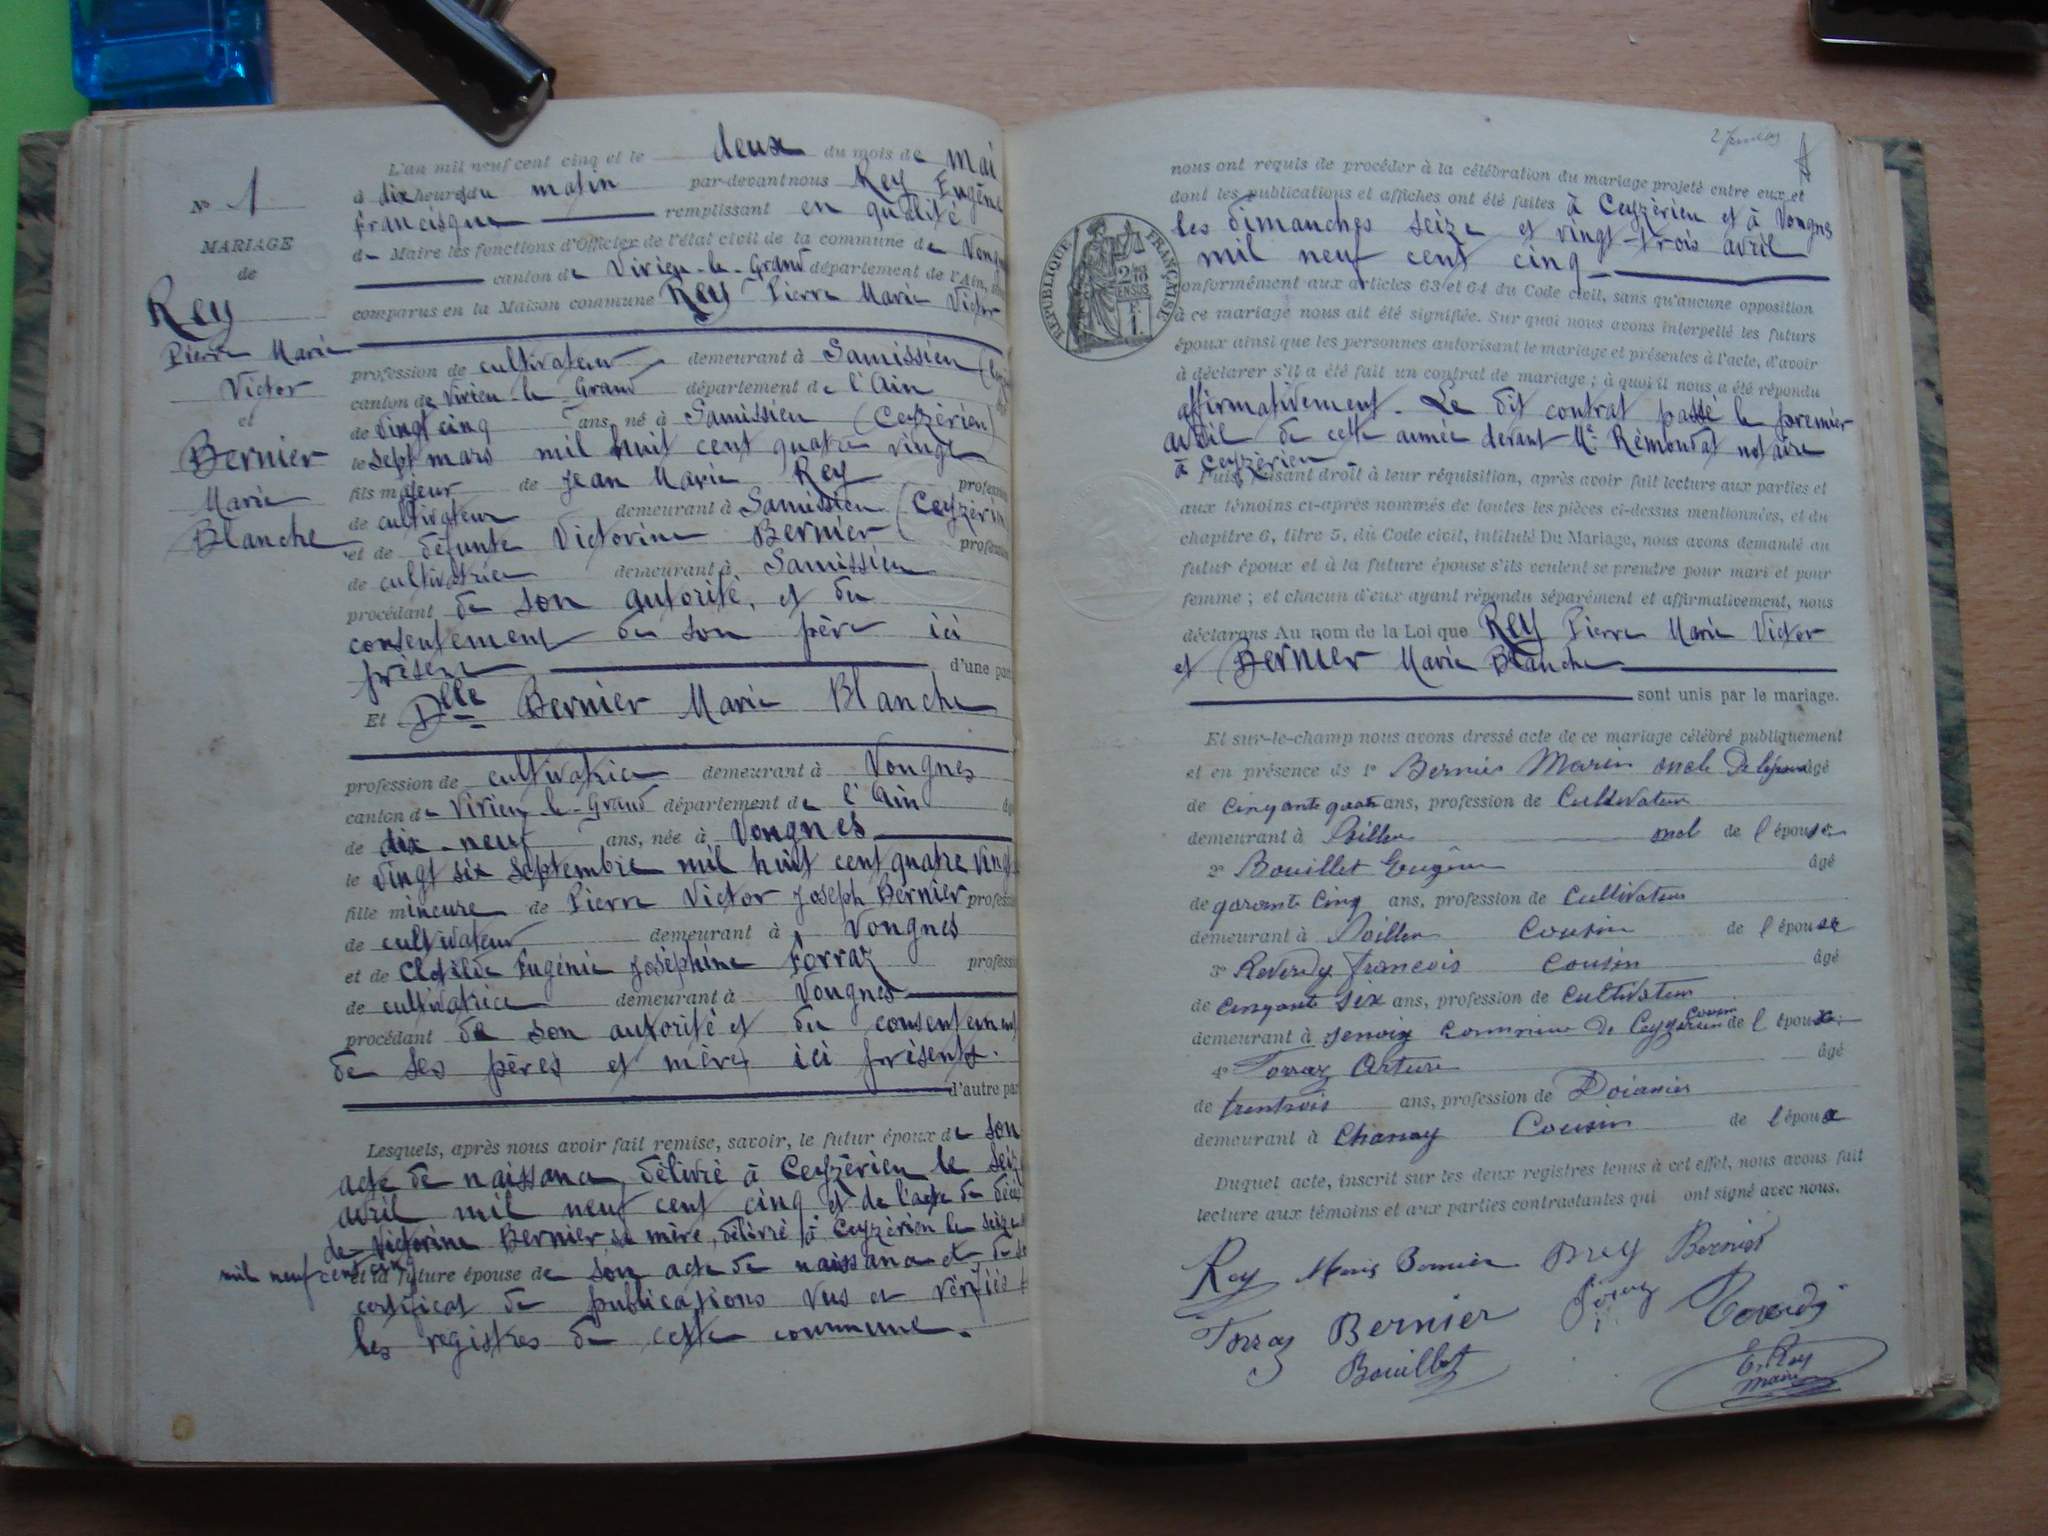 N° 1
MARIAGE
de
Rey
Pierre Marie
Victor
et
Bernier
Marie
Blanche
L'an mil neuf cent cinq et le deux du mois de mai
à dix heures du matin par-devant nous Rey Eugène
Francisque remplissant en qualité
de Maire les fonctions d'Officier de l'état civil de la commune de Vongnes
canton de Virieu-le-Grand département de l'Ain,
comparus en la Maison commune Rey Pierre Marie Victor
profession de cultivateur demeurant à Samissieu
canton de Virieu-le-Grand département de l'Ain
de vingt cinq ans, né à Samissieu (Ceyzérieu)
le sept mars mil huit cent quatre vingt
fils majeur de Jean Marie Rey profession
de cultivateur demeurant à Samissieu (Ceyzérieu
et de défunte Victorine Bernier profession
de cultivatrice demeurant à Samissieu
procédant de son autorité, et du
consentement de son père ici
présent d'une part
Et Dlle Bernier Marie Blanche
profession de cultivatrice demeurant à Vongnes
canton de Virieu-le-Grand département de l'Ain
de dix-neuf ans, née à Vongnes
le vingt six septembre mil huit cent quatre vingt
fille mineure de Pierre Victor Joseph Bernier profession
de cultivateur demeurant à Vongnes
et de Clotilde Eugénie Joséphine Forraz profession
de cultivatrice demeurant à Vongnes
procédant de son autorité et du consentement
de ses pères et mères ici présents.
d'autre part
Lesquels, après nous avoir fait remise, savoir, le futur époux de son
acte de naissance, délivré à Ceyzérieu le seize
avril mil neuf cent cinq et de l'acte de décès
de Victorine Bernier sa mère, délivré à Ceyzérieu le seize
mil neuf cent cinq
et la future épouse de son acte de naissance et du
certificat de publications vus et vérifiés
les registres de cette commune.
nous ont requis de procéder à la célébration du mariage projeté entre eux et
dont les publications et affiches ont été faites à Ceyzérieu et à Vongnes
les dimanches seize et vingt-trois avril
mil neuf cent cinq
RÉPUBLIQUE FRANÇAISE
conformément aux articles 63 et 64 du Code civil, sans qu'aucune opposition
à ce mariage nous ait été signifiée. Sur quoi nous avons interpellé les futurs
époux ainsi que les personnes autorisant le mariage et présentes à l'acte, d'avoir
à déclarer s'il a été fait un contrat de mariage ; à quoi il nous a été répondu
affirmativement. Le dit contrat passé le premier
avril de cette année devant Me Rémondat notaire
à Ceyzérieu
Puis, faisant droit à leur réquisition, après avoir fait lecture aux parties et
aux témoins ci-après nommés de toutes les pièces ci-dessus mentionnées, et du
chapitre 6, titre 5, du Code civil, intitulé Du Mariage, nous avons demandé au
futur époux et à la future épouse s'ils veulent se prendre pour mari et pour
femme ; et chacun d'eux ayant répondu séparément et affirmativement, nous
déclarons Au nom de la Loi que Rey Pierre Marie Victor
et Bernier Marie Blanche
sont unis par le mariage.
Et sur-le-champ nous avons dressé acte de ce mariage célébré publiquement
et en présence de 1° Bernier Marin oncle De l'épouse âgé
de cinquante quatre ans, profession de Cultivateur
demeurant à de l'épouse
2° Bouillet Eugène âgé
de quarante cinq ans, profession de Cultivateur
demeurant à Cousin de l'épouse
3° Reverdy François cousin âgé
de cinquante six ans, profession de Cultivateur
demeurant à commune de Ceyzérieu cousin de l'époux
4° Forraz Arture âgé
de trentrois ans, profession de Doianier
demeurant à Chanay Cousin de l'épouse
Duquel acte, inscrit sur les deux registres tenus à cet effet, nous avons fait
lecture aux témoins et aux parties contractantes qui ont signé avec nous.
Rey Marie Bernier Rey Bernier
Forraz Bernier Reverdy
Bouillet E. Rey
maire